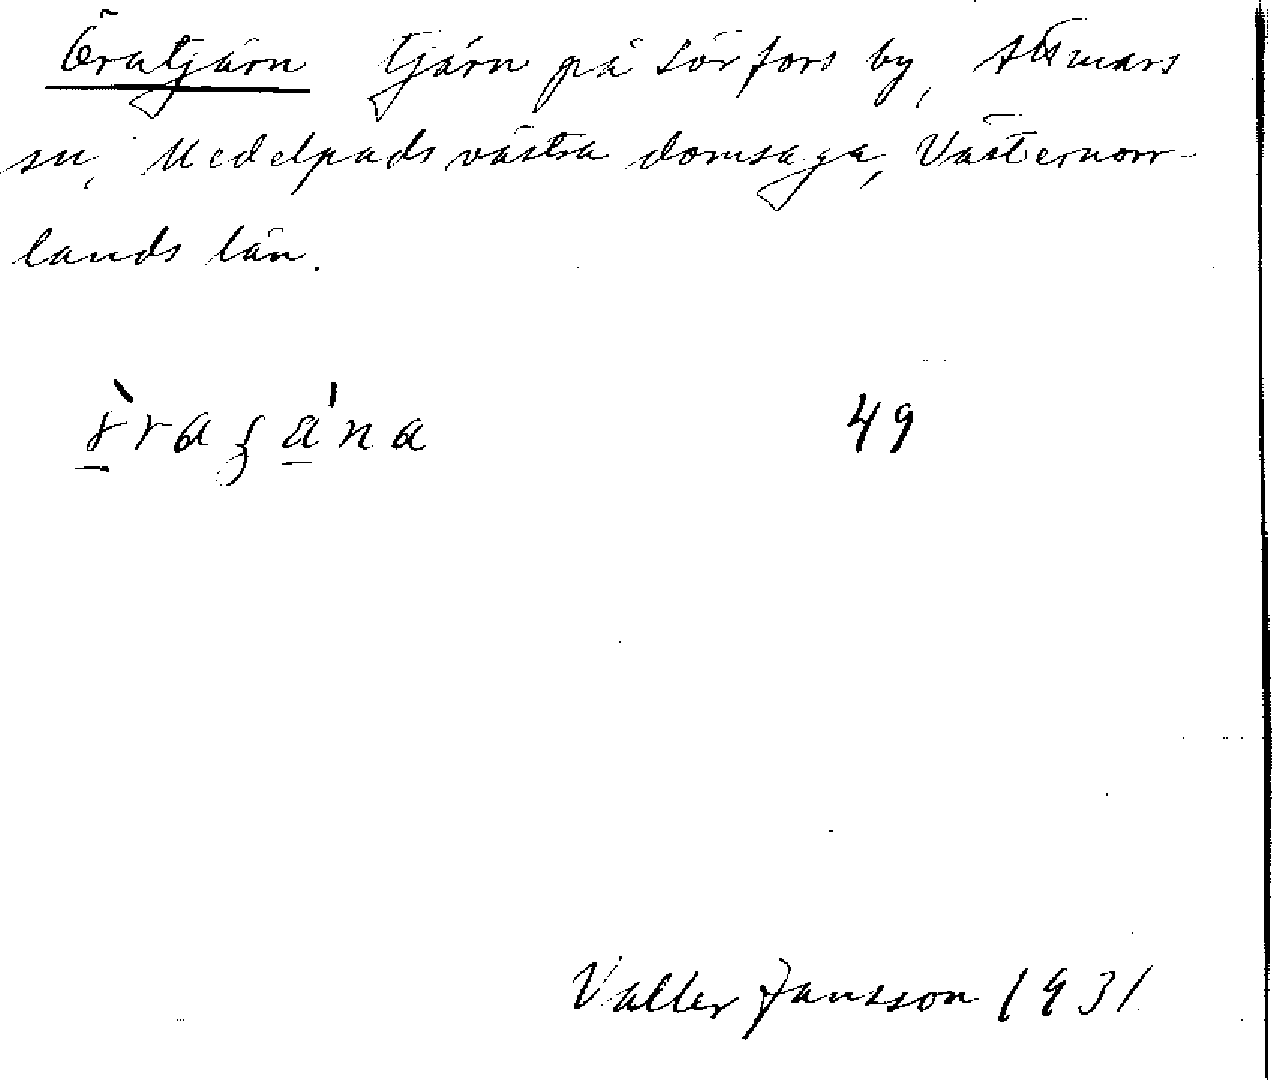 Öratjärn tjärn på Sörfors by, Attmars
sn, Medelpads västra domsaga, Västernorr-
lands län.
49
Valter Jansson 1931